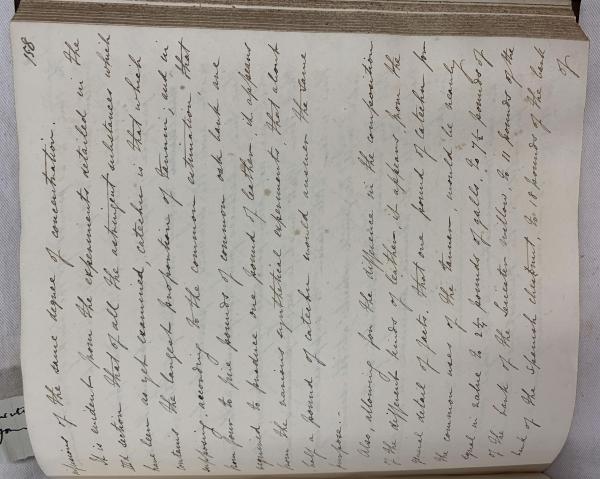 188
infusions of the same degree of concentration.
It is evident from the experiments detailed in the
IIId section that of all the astringent substances which
have been as yet examined, catechu is that which
contains the largest proportion of tannin; and in
supposing, according to the common estimation, that
from four to five pounds of common oak bark are
required to produce one pound of leather, it appears
from the various synthetical experiments, that about
half a pound of catechu would answer the same
purpose.
Also, allowing for the difference in the composition
of the different kinds of leather, it appears, from the
general detail of facts, that one pound of catechu for
the common uses of the tanner, would be nearly
equal in value to 2½ pounds of galls, to 7½ pounds of
of the bark of the Leicester willow, to 11 pounds of the
bark of the Spanish chestnut, to 18 pounds of the bark
of